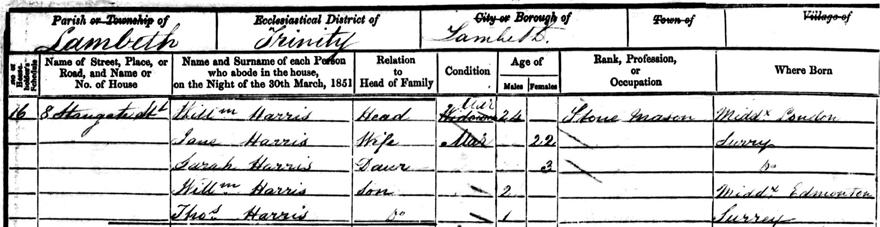 Parish or Township of Ecclesiastical District of City or Borough of Town of Village of
Lambeth Trinity Lambeth.
No. of House-holder's Schedule Name of Street, Place, or Road, and Name or No. of House Name and Surname of each Person who abode in the house, on the Night of the 30th March, 1851 Relation to Head of Family Condition Age of Males Females Rank, Profession, or Occupation Where Born
16 8 Stangate St Willm Harris Head Mar 24 Stone Mason Middx London
Jane Harris Wife Mar 22 Surry
Sarah Harris Daur 3 Do
Willm Harris Son 2 Middx Edmonton
Thos Harris Do 1 Surrey